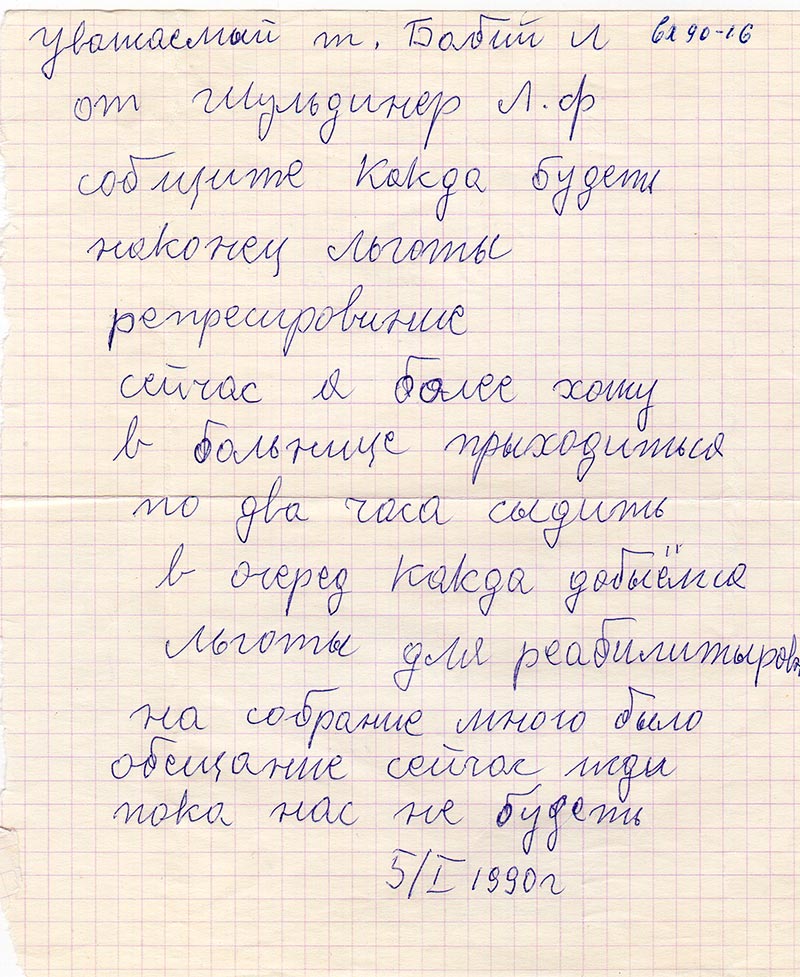 Уважаемый т. Бабий Л вх 90-16
от Шульдинер Л.Ф
собщите какда будеть
наконец льготы
репресирование
сейчас я более хожу
в больнице прыходиться
по два часа сыдить
в очеред какда добыёмса
льготы для реабилитыровн
на собрание много было
обещание сейчас жды
пока нас не будеть
5/I 1990г